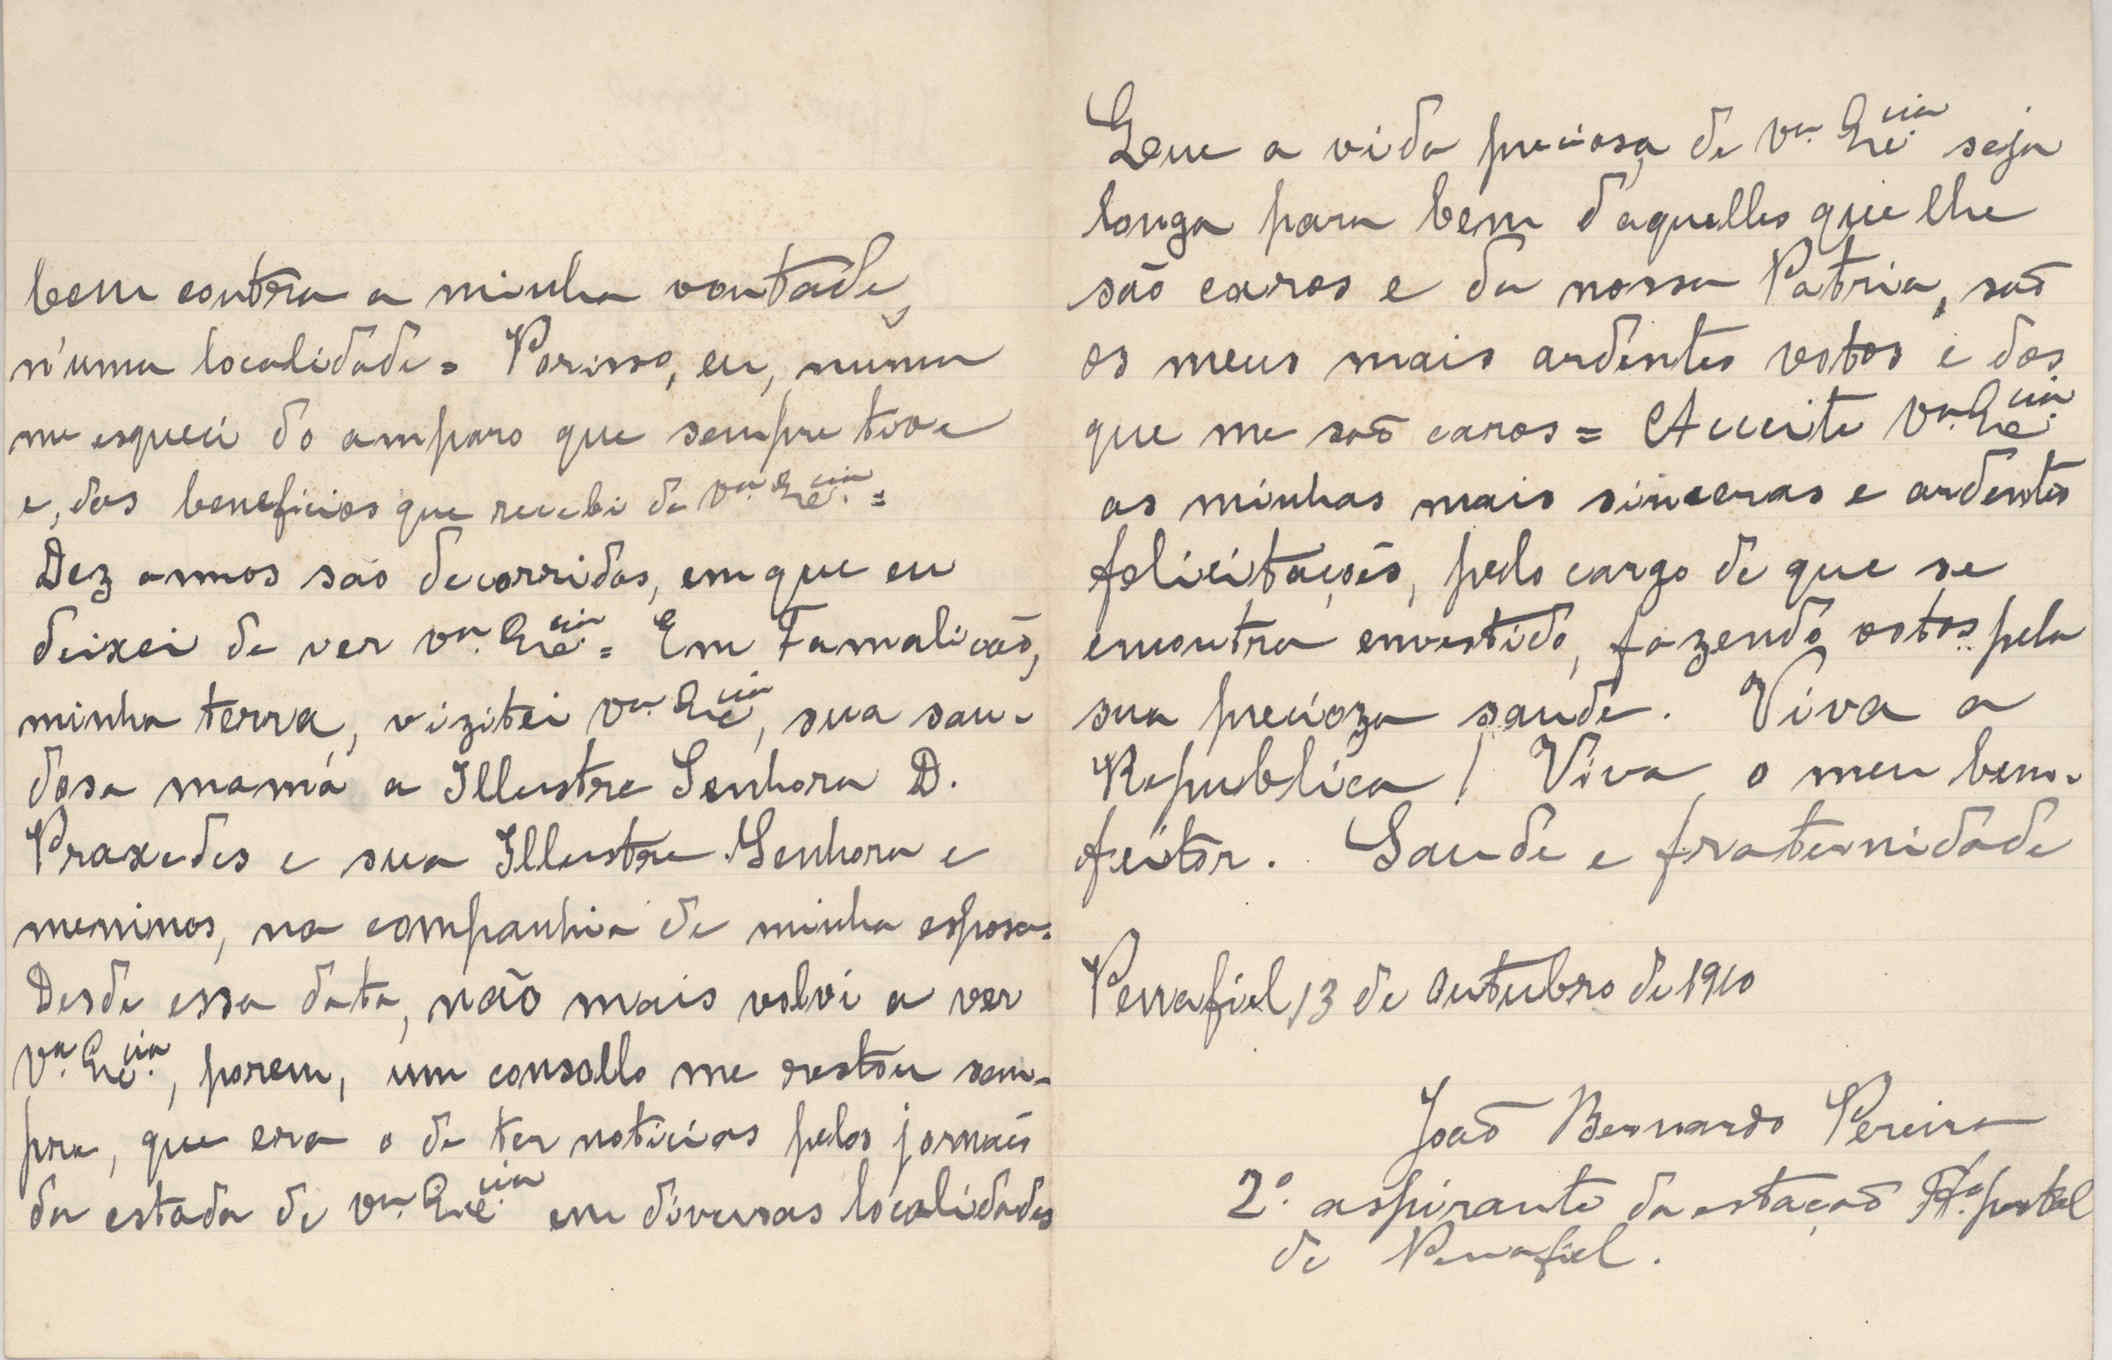 bem contra a minha vontade,
n'uma localidade = Porisso, eu, nunca
me esqueci do amparo que sempre tive
e, dos beneficios que recebi de Vª. Exᶜⁱᵃ. =
Dez annos são decorridos, em que eu
deixei de ver Vª. Exᶜⁱᵃ. = Em Famalicão,
minha terra, vizitei Vª. Exᶜⁱᵃ, sua sau-
dosa mamã a Illustre Senhora D.
Praxedes e sua Illustre Senhora e
meninos, na companhia de minha esposa.
Desde essa data, não mais volvi a ver
Vª. Exᶜⁱᵃ., porem, um consollo me restou sem-
pre, que era o de ter noticias pelos jornaes
da estada de Vª. Exᶜⁱᵃ. em diversas localidades
Que a vida preciosa de Vª. Exᶜⁱᵃ. seja
longa para bem d'aquelles que lhe
são caros e da nossa Patria, são
os meus mais ardentes votos e dos
que me são caros = Acceite Vª. Exᶜⁱᵃ.
as minhas mais sinceras e ardentes
felicitações, pelo cargo de que se
encontra envestido, fazendo votos pela
sua precioza saude. Viva a
Republica! Viva o meu bem-
feitor. Saude e fraternidade
Penafiel 13 de Outubro de 1910
João Bernardo Pereira
2º. aspirante da estação postal
de Penafiel.